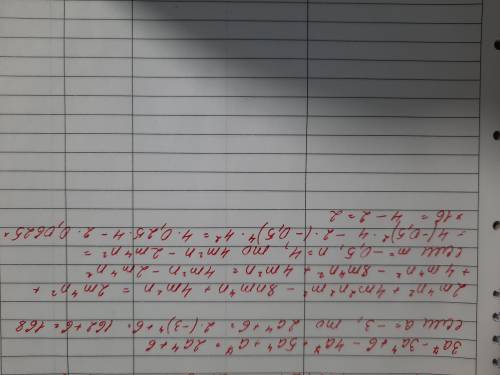 3a⁷ - 3a⁴ + 6 - 4a⁷ + 5a⁴ + a⁷ = 2a⁴ + 6
если a = -3, то 2a⁴ + 6 = 2·(-3)⁴ + 6 = 162 + 6 = 168
2m⁴n² + 4m²n²m² - 8nm⁴n + 4m²n = 2m⁴n² +
+ 4m⁴n² - 8m⁴n² + 4m²n = 4m²n - 2m⁴n²
если m = -0,5, n = 4, то 4m²n - 2m⁴n² =
= 4·(-0,5)²·4 - 2·(-0,5)⁴·4² = 4·0,25·4 - 2·0,0625×
×16 = 4 - 2 = 2